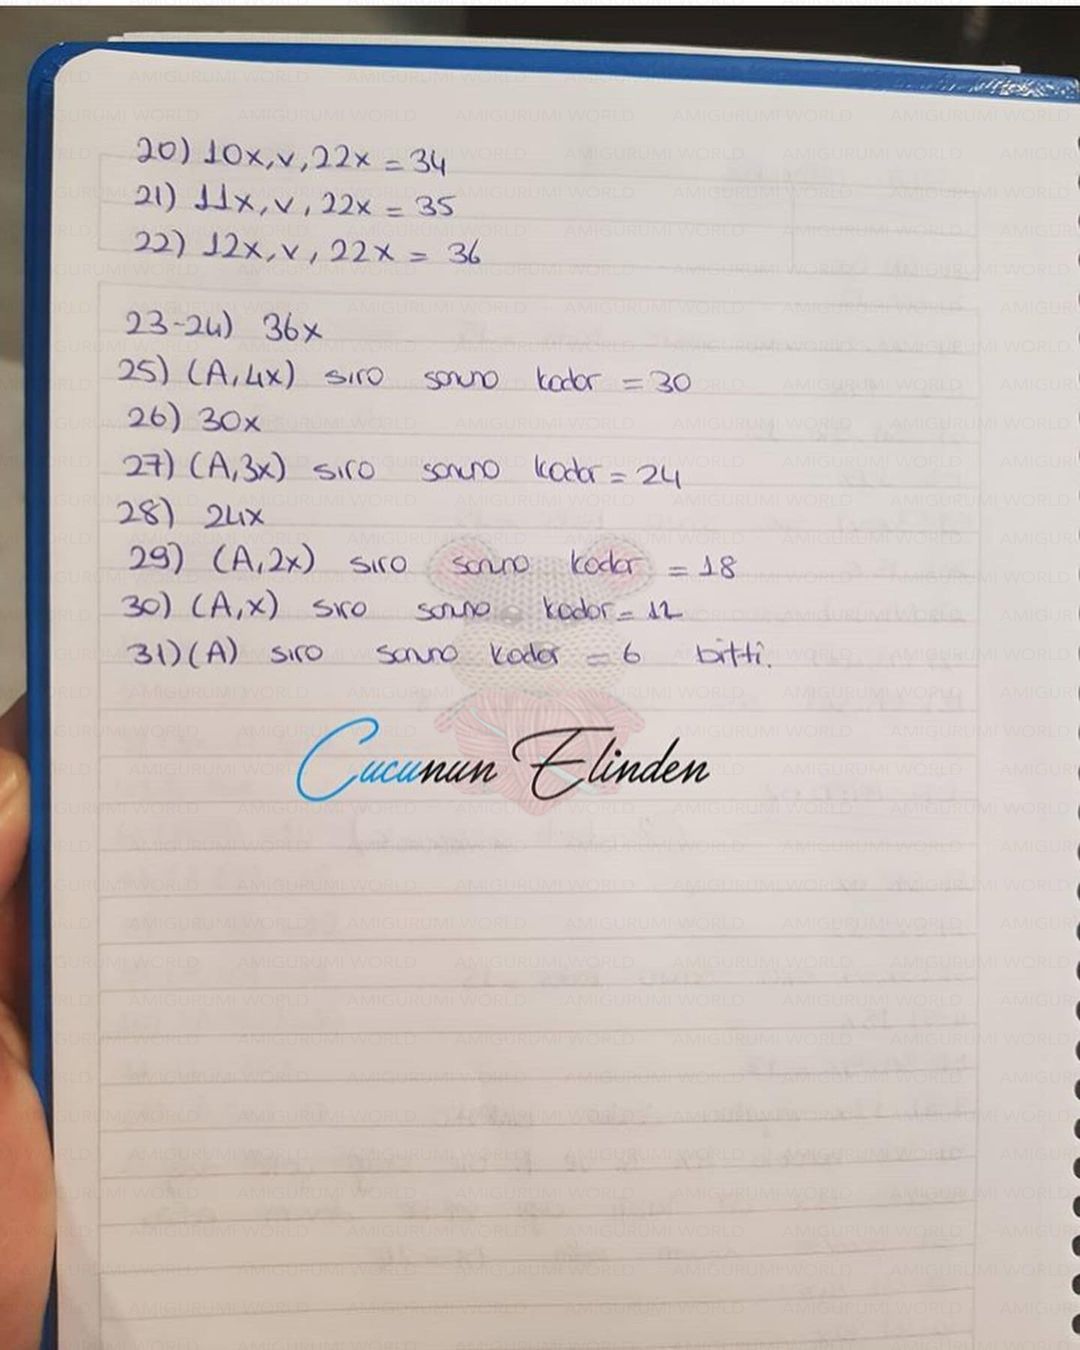 20) 10x,v,22x = 34
21) 11x,v,22x = 35
22) 12x,v,22x = 36
23-24) 36x
25) (A,4x) sıra sonuna kadar = 30
26) 30x
27) (A,3x) sıra sonuna kadar = 24
28) 24x
29) (A,2x) sıra sonuna kadar = 18
30) (A,x) sıra sonuna kadar = 12
31) (A) sıra sonuna kadar = 6 bitti.
Cucunun Elinden
AMIGURUMI WORLD